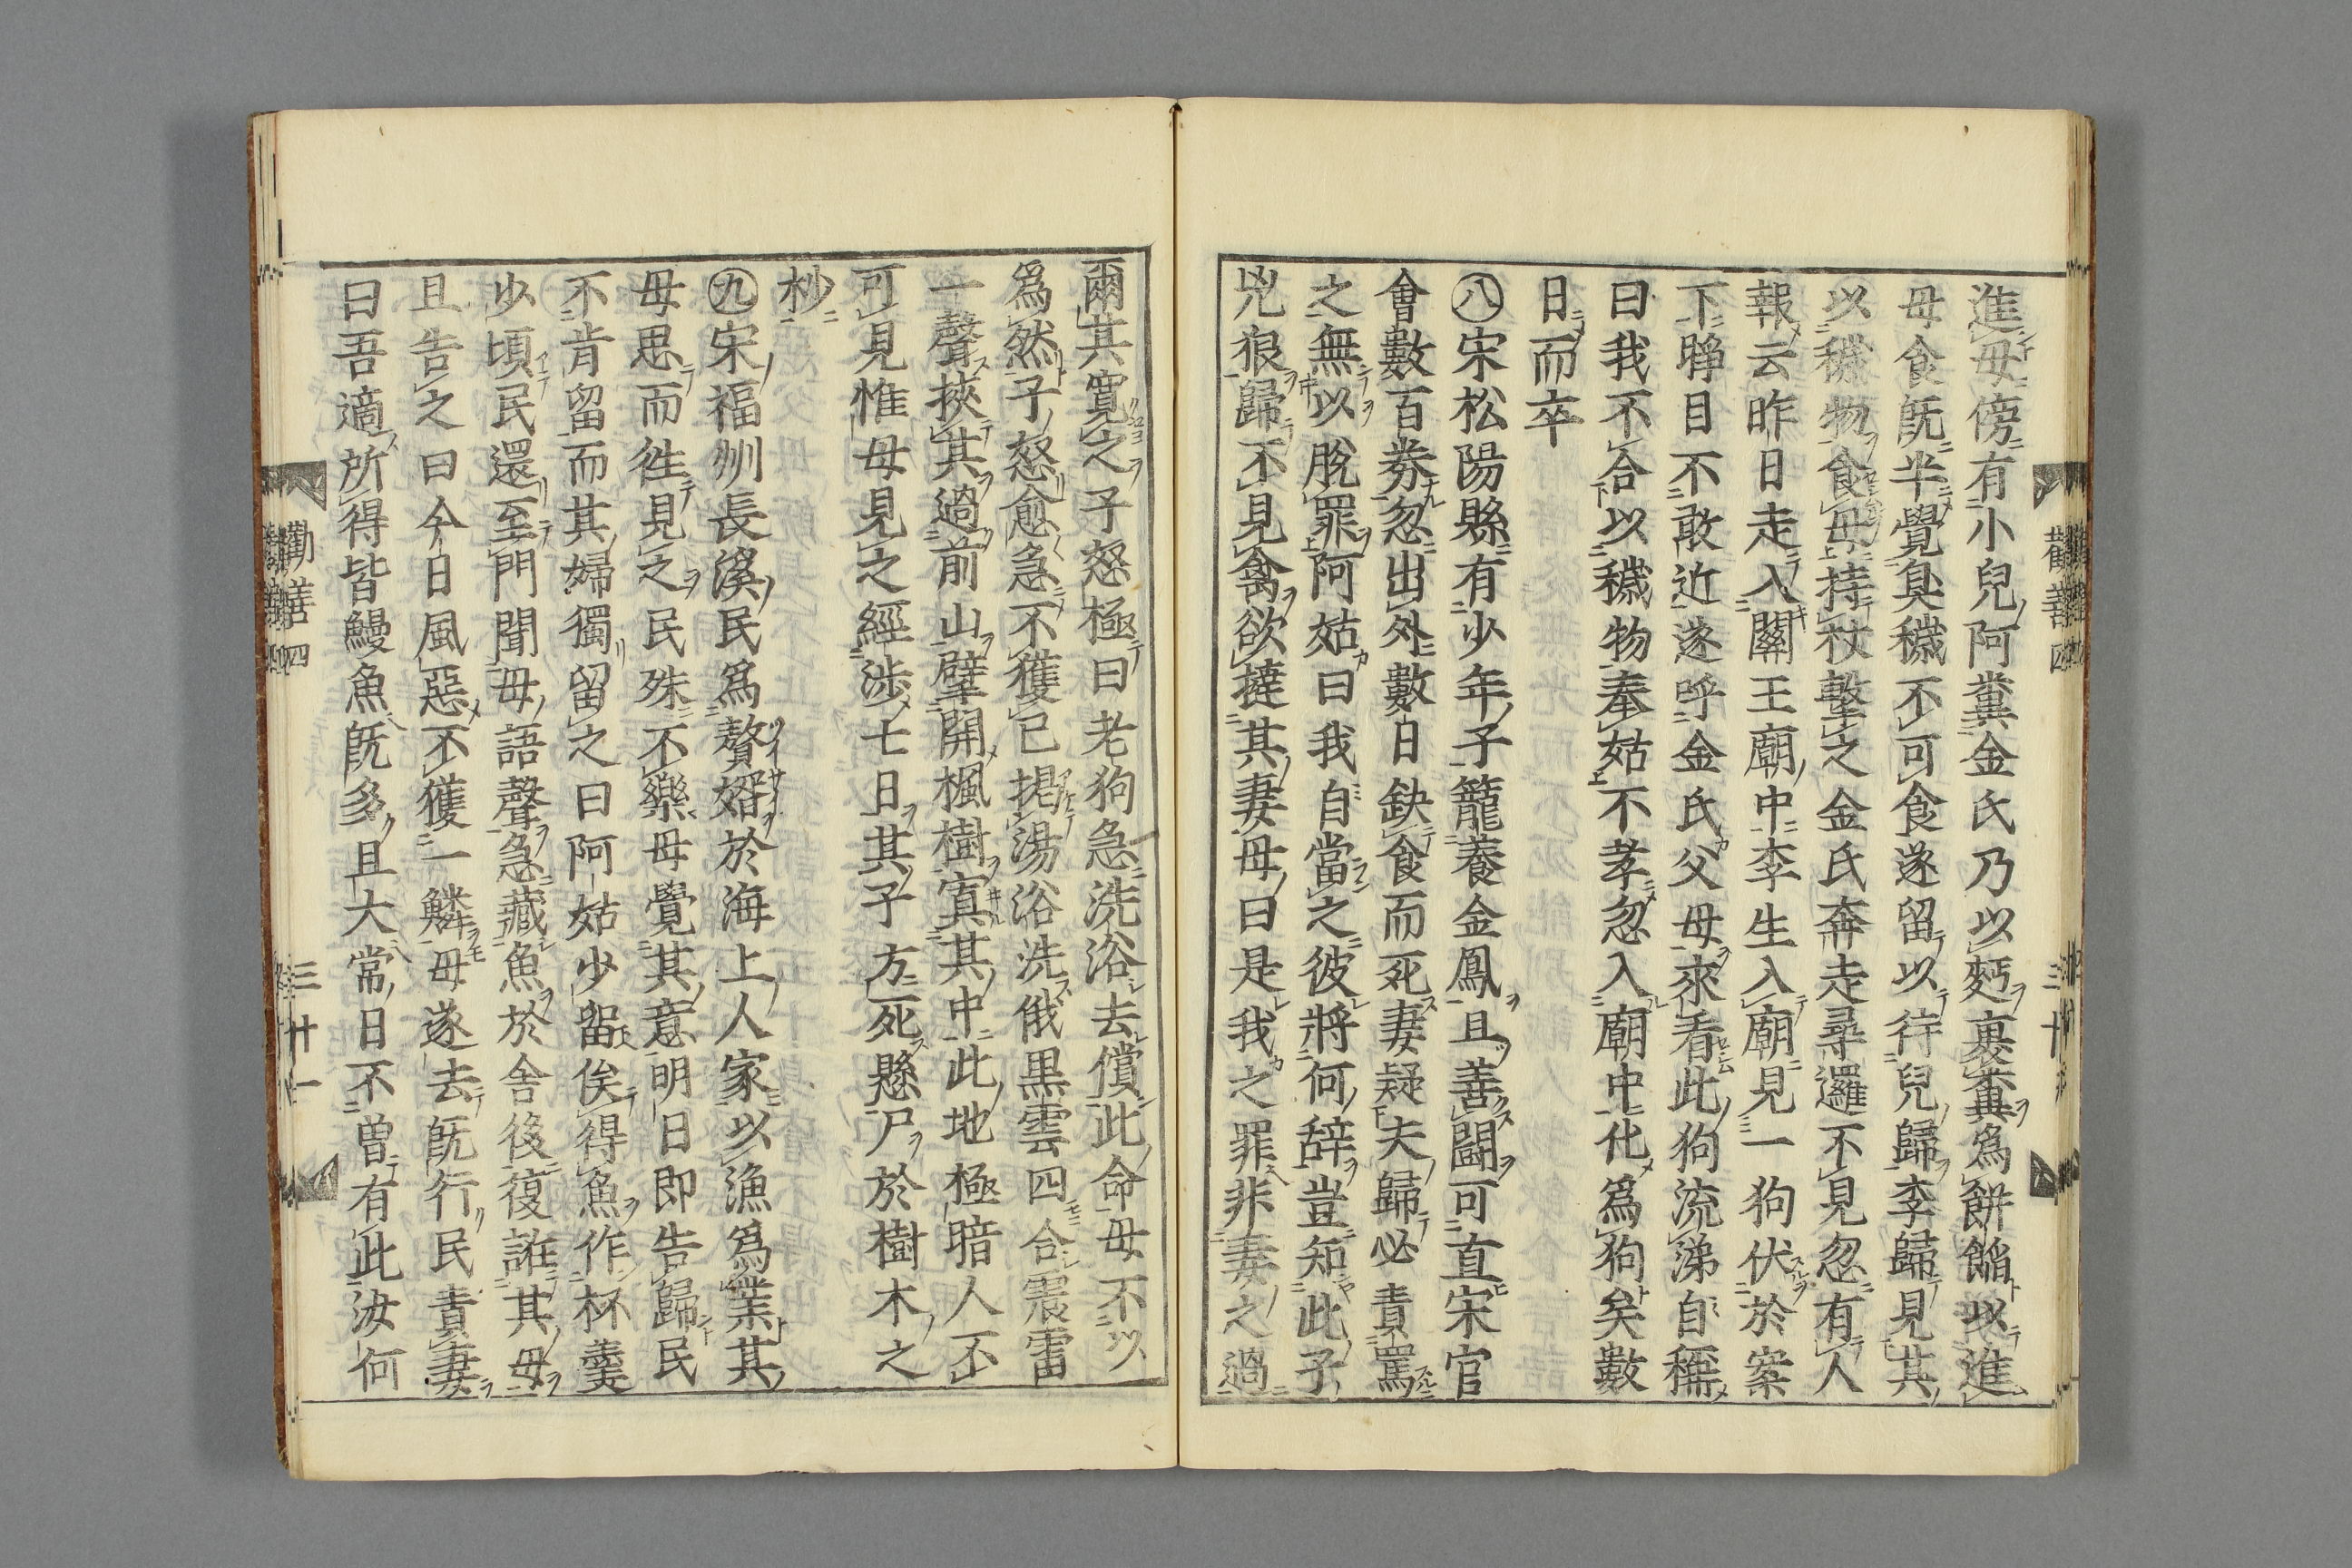 進母傍有小兒阿糞金氏乃以麪裹糞爲餅餡以進
母食旣半覺臭穢不可食遂留以待兒歸李歸見其
以穢物食母持杖擊之金氏奔走尋邏不見忽有人
報云昨日走入關王廟中李生入廟見一狗伏於案
下睜目不敢近遂呼金氏父母來看此狗流涕自稱
曰我不合以穢物奉姑不孝忽入廟中化爲狗矣數
日而卒
㊇宋松陽縣有少年子籠養金鳳且善鬪可直宋官
會數百劵忽出外數日缺食而死妻疑夫歸必責罵
之無以脫罪阿姑曰我自當之彼將何辞豈知此子
兇狠歸不見禽欲撻其妻母曰是我之罪非妻之過
爾其寛之子怒極曰老狗急洗浴去償此命母不以
爲然子怒愈急不獲已提湯浴洗俄黒雲四合震雷
一聲挾其過前山擘開楓樹寘其中此地極暗人不
可見惟母見之經涉七日其子方死懸尸於樹木之
杪
㊈宋福州長溪民爲贅婿於海上人家以漁爲業其
母思而徃見之民殊不樂母覺其意明日即告歸民
不肯留而其婦獨留之曰阿姑少留俟得魚作杯羹
少頃民還至門聞母語聲急藏魚於舍後復誑其母
且告之曰今日風惡不獲一鱗母遂去旣行民責妻
曰吾適所得皆鰻魚旣多且大常日不曽有此汝何
勸善四
三十一